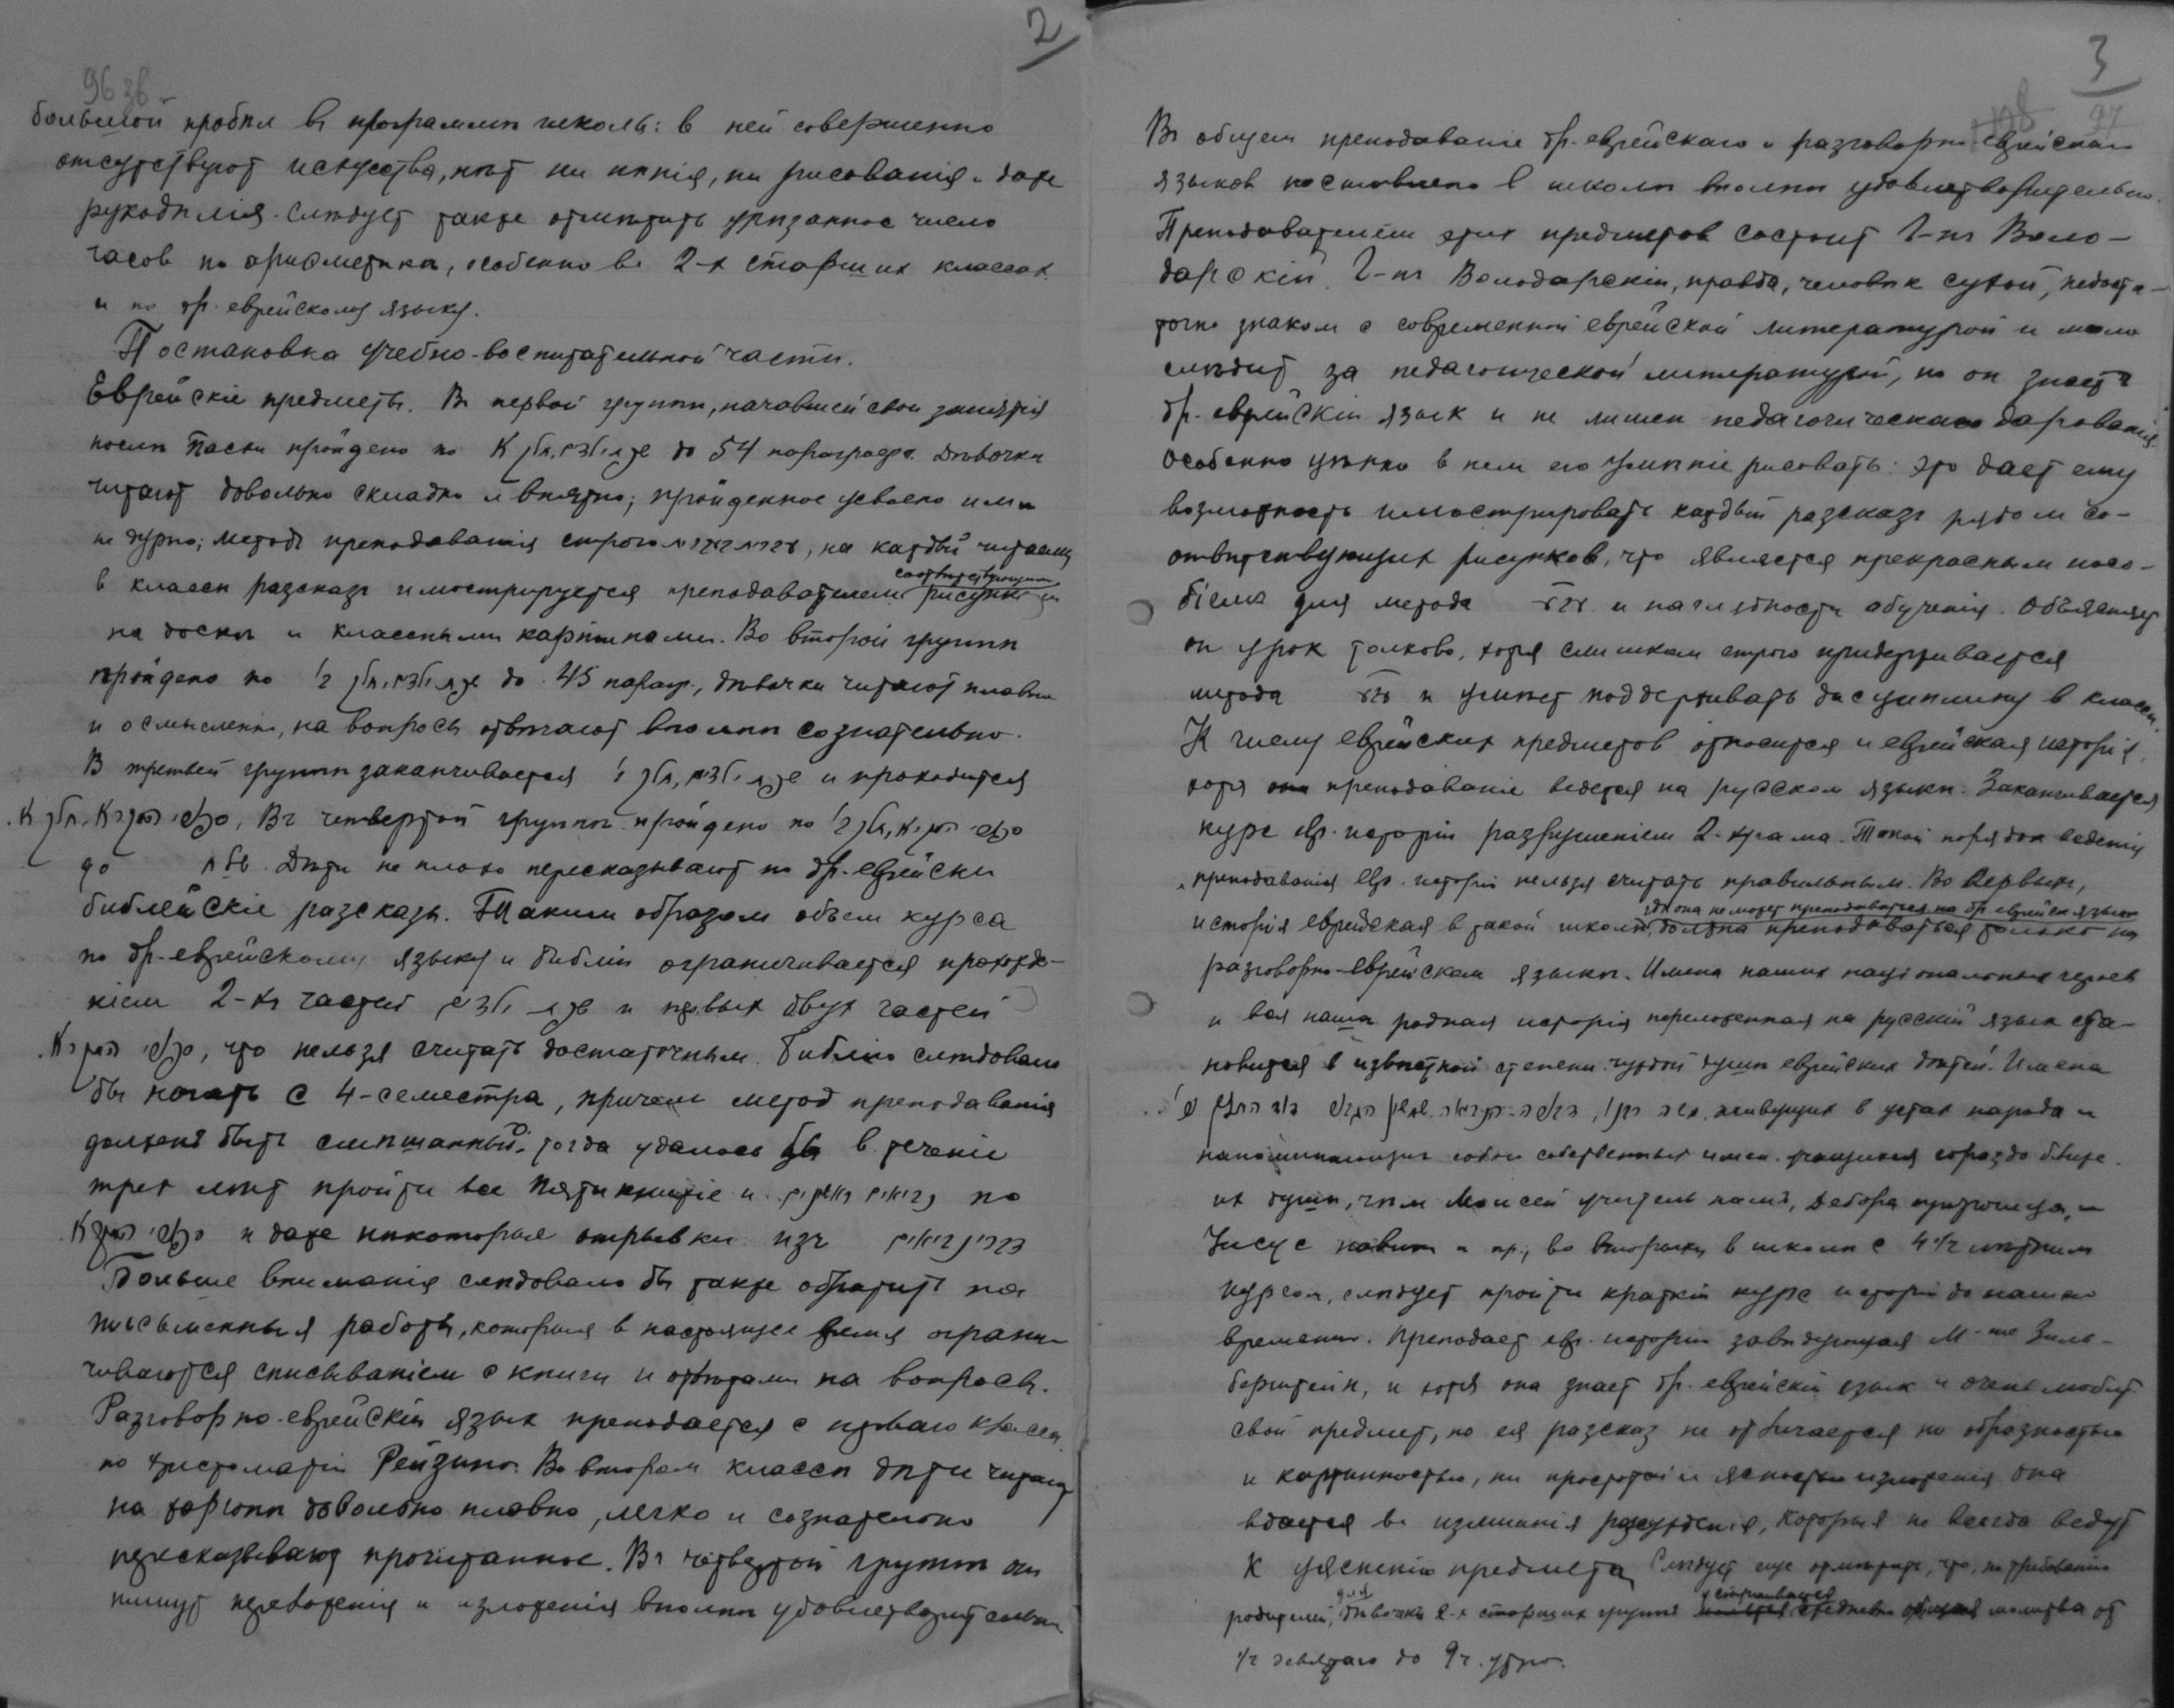 2
96 зв
большой пробел въ программѣ школы: в ней совершенно
отсутствуют искусства, нѣт ни пѣнія, ни рисованія и даже
рукодѣлія. Слѣдует также отмѣтить урѣзанное число
часов по арифметикѣ, особенно въ 2-х старших классах
и по др. еврейскому языку.
Постановка учебно-воспитательной части.
Еврейскіе предметы. Въ первой группѣ, начавшей свои занятія
послѣ Пасхи пройдено по до 54 параграфа. Дѣвочки
читают довольно складно и внятно; пройденное усвоено ими
не дурно; методъ преподаванія строго на каждый читаемый
в классѣ разсказъ иллюстрируется преподавателем соотвѣтствующими рисунками
на доскѣ и классными картинами. Во второй группѣ
пройдено по до 45 параг., дѣвочки читают плавно
и осмысленно, на вопросы отвѣчают вполнѣ сознательно.
В третьей группѣ заканчивается и проходится
Въ четвертой группѣ пройдено по
до Дѣти не плохо пересказывают по др.-еврейски
библейскіе разсказы. Таким образом объем курса
по др.-еврейскому языку и библіи ограничивается прохожде-
ніем 2-хъ частей и первых двух частей
, что нельзя считать достаточным. Библію слѣдовало
бы начать с 4-семестра, причем метод преподаванія
должен быть смѣшанный; тогда удалось бы в теченіе
трех лѣт пройти все Пятикнижіе и נביאים ראשונים по
и даже нѣкоторые отрывки изъ
Больше вниманія слѣдовало бы также обратить на
письменныя работы, которыя в настоящее время ограни-
чиваются списываніем с книги и отвѣтами на вопросы.
Разговорно-еврейскій язык преподается с перваго класса
по христоматіи Рейзина. Во втором классѣ дѣти читают
на жаргонѣ довольно плавно, легко и сознательно
пересказывают прочитанное. Въ четвертой группѣ они
пишут переложенія и изложенія вполнѣ удовлетворительно.
3
97
Въ общем преподаваніе др.-еврейскаго и разговорно-еврейскаго
языков поставлено в школѣ вполнѣ удовлетворительно.
Преподавателем этих предметов состоит Г-нъ Воло-
дарскій. Г-нъ Володарскій, правда, человѣк сухой, недоста-
точно знаком с современной еврейской литературой и мало
слѣдит за педагогической литературой, но он знает
др.-еврейскій язык и не лишен педагогическаго дарованія.
Особенно цѣнно в нем его умѣніе рисовать: это дает ему
возможность иллюстрировать каждый разсказъ рядом со-
отвѣтствующих рисунков, что является прекрасным посо-
біемъ для метода и наглядности обученія. Объясняет
он урок толково, хотя слишком строго придерживается
метода и умѣет поддерживать дисциплину в классѣ.
К числу еврейских предметов относится и еврейская исторія,
хотя преподаваніе ведется на русском языкѣ. Заканчивается
курс евр. исторіи разрушеніем 2-храма. Такой порядок веденія
преподаванія евр. исторіи нельзя считать правильным. Во первых,
исторія еврейская в такой школѣ, гдѣ она не может преподаваться на др. еврейск. языкѣ должна преподаваться только на
разговорно-еврейском языкѣ. Имена наших національных героев
и вся наша родная исторія переложенная на русскій язык ста-
новится в извѣстной степени чуждой душѣ еврейских дѣтей. Имена
משה רבנו, דבורה הנביאה, живущих в устах народа и
напоминающих собою собственныя имена учащихся гораздо ближе
их душѣ, чѣм Моисей учитель нашъ, Дебора пророчица, и
Іисус навин и пр., во вторых, в школѣ с 4 1/2 лѣтним
курсом, слѣдует пройти краткій курс исторіи до нашего
времени. Преподает евр. исторію завѣдующая М-me Зиль-
берштейн, и хотя она знает др. еврейскій язык и очень любит
свой предмет, но ея разсказ не отличается ни образностью
и картинностью, ни простотой и ясностью изложенія. Она
вдается въ излишнія разсужденія, которыя не всегда ведут
к уясненію предмета. Слѣдует еще отмѣтить, что, по требованію
родителей, для дѣвочек 2-х старших группъ устраивается молитва от
1/2 девятаго до 9 ч. утра.